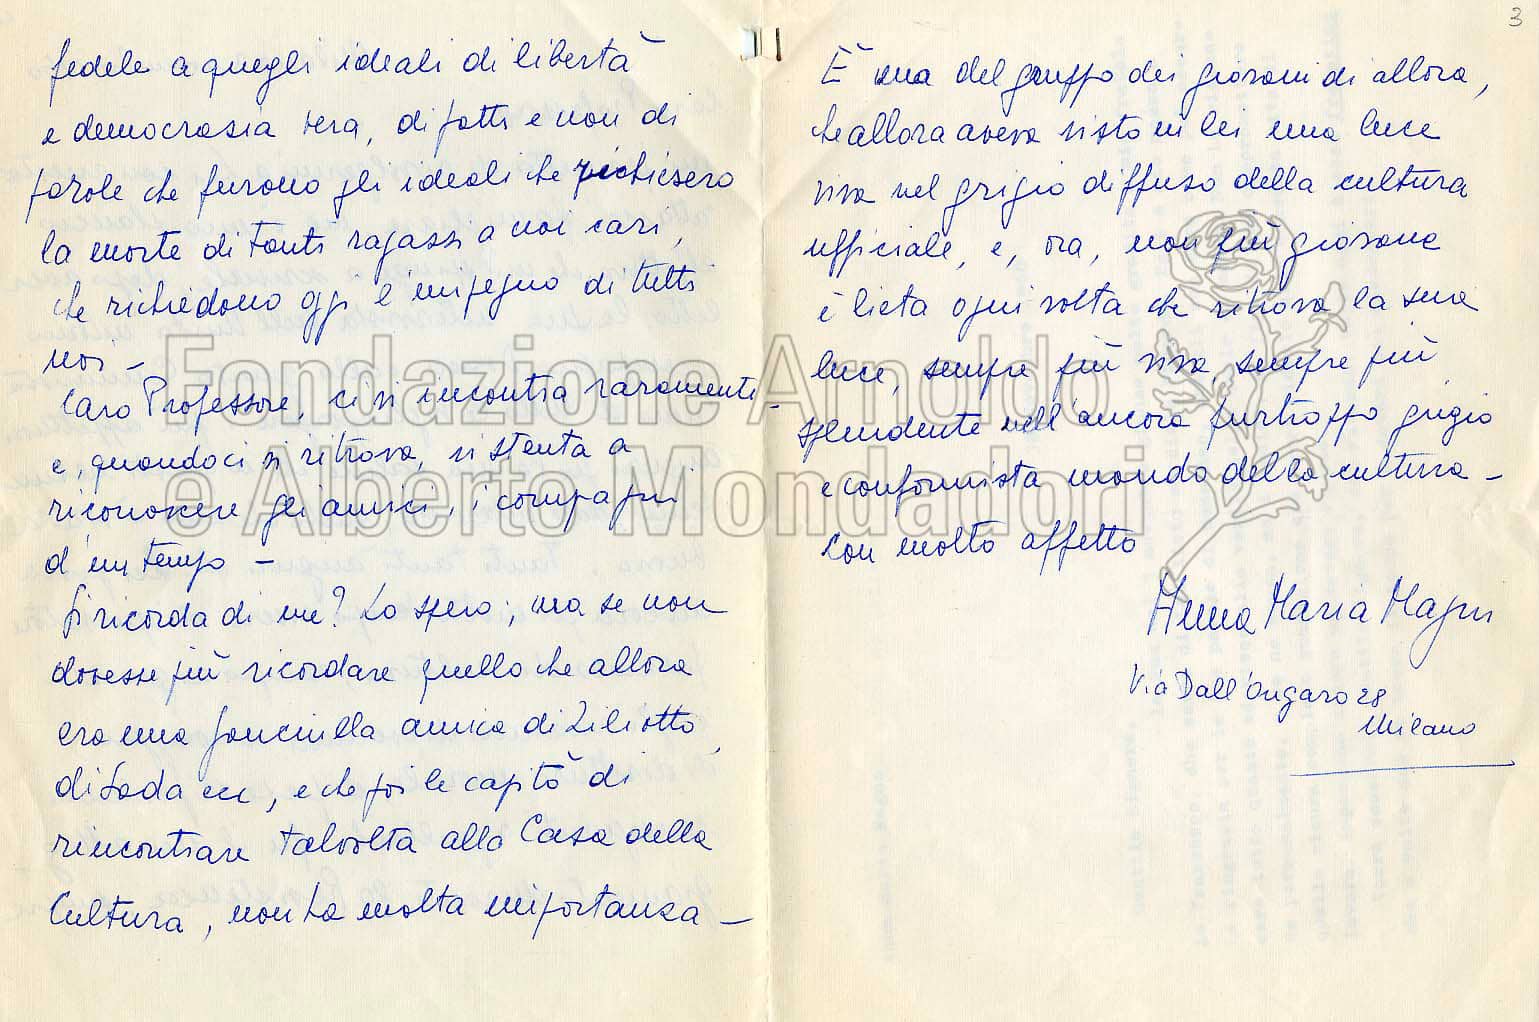 3
fedele a quegli ideali di libertà
e democrazia vera, di fatti e non di
parole che furono gli ideali che richiesero
la morte di tanti ragazzi a noi cari,
che richiedono oggi l'impegno di tutti
noi –
Caro Professore, ci si incontra raramente
e, quando ci si ritrova, si stenta a
riconoscere gli amici, i compagni
d'un tempo –
Si ricorda di me? Lo spero; ma se non
dovesse più ricordare quella che allora
era una fanciulla amica di Ziliotto,
di Lada ecc, e che poi le capitò di
rincontrare talvolta alla Casa della
Cultura, non ha molta importanza –
È una del gruppo dei giovani di allora,
che allora aveva visto in lei una luce
viva nel grigio diffuso della cultura
ufficiale, e, ora, non più giovane
è lieta ogni volta che ritrova la sua
luce, sempre più viva, sempre più
splendente nell'ancora purtroppo grigio
e conformista mondo della cultura –
Con molto affetto
Anna Maria Magni
Via Dall'Ongaro 28
Milano
Fondazione Arnoldo
e Alberto Mondadori